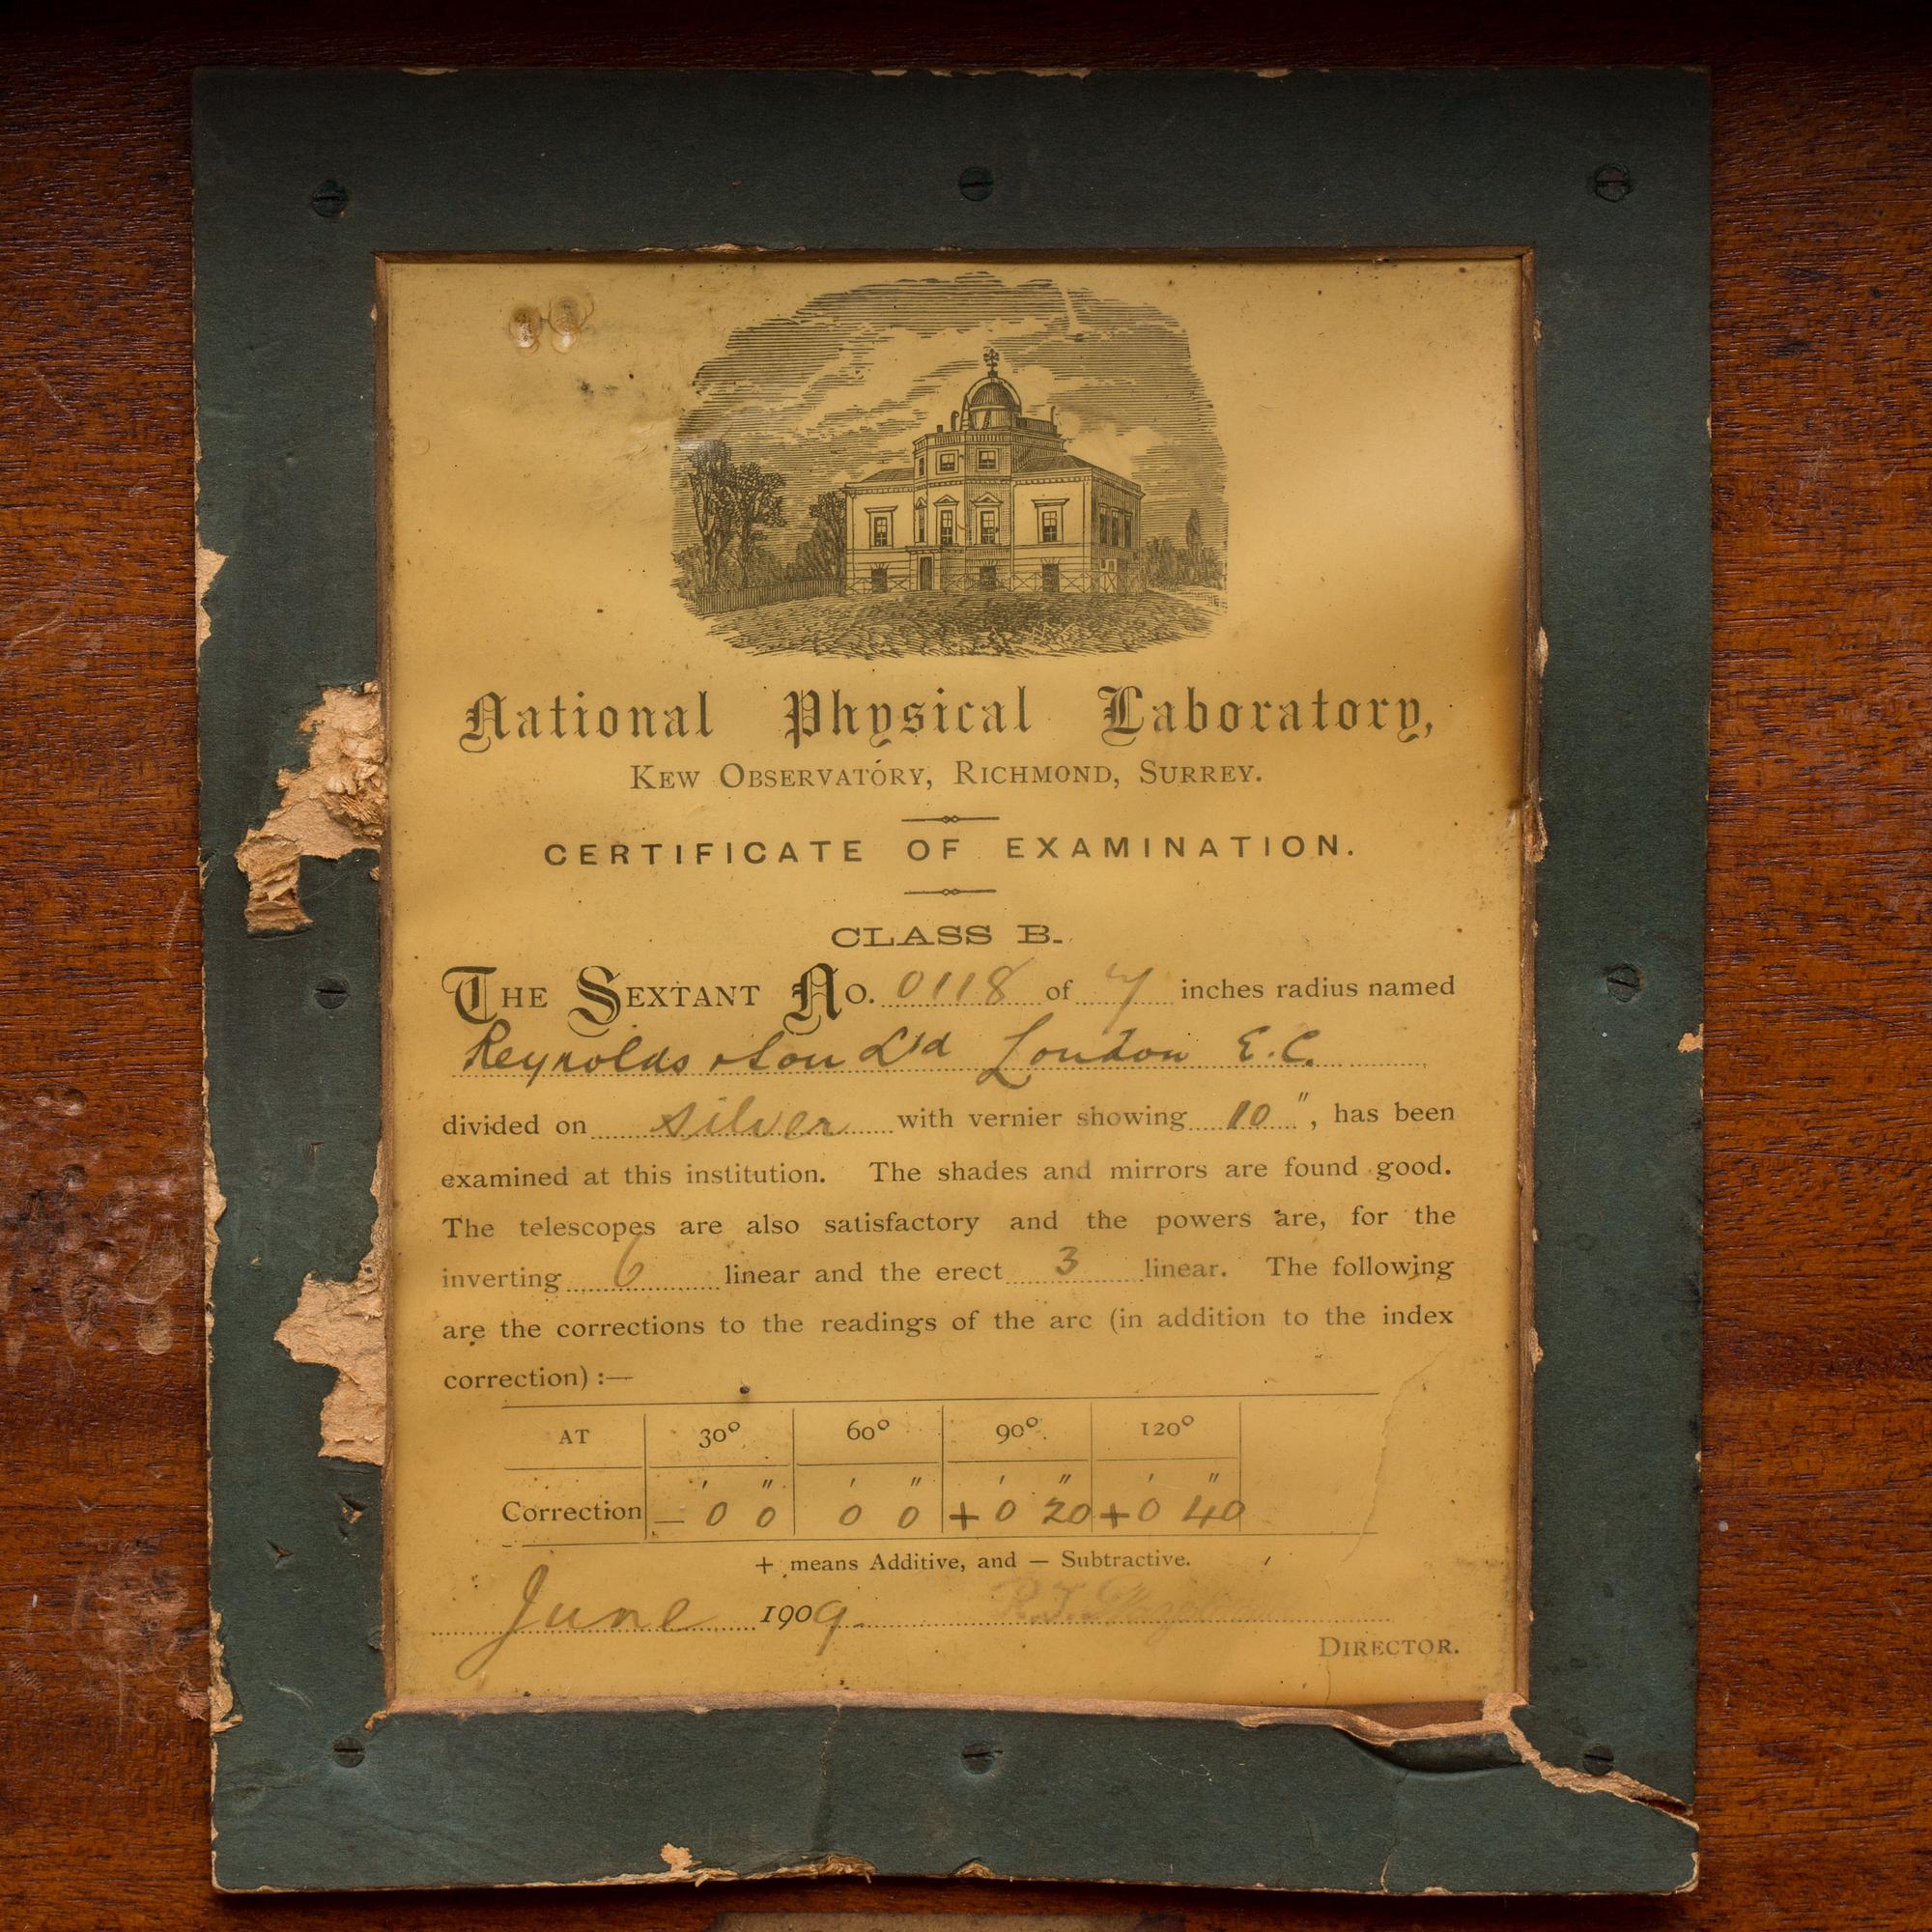 National Physical Laboratory,
KEW OBSERVATORY, RICHMOND, SURREY.
CERTIFICATE OF EXAMINATION.
CLASS B.
THE SEXTANT No. 0118 of 7 inches radius named
Reynolds & Son Ltd London E.C.
divided on silver with vernier showing 10", has been
examined at this institution. The shades and mirrors are found good.
The telescopes are also satisfactory and the powers are, for the
inverting 6 linear and the erect 3 linear. The following
are the corrections to the readings of the arc (in addition to the index
correction) :—
AT 30° 60° 90° 120°
' " ' " ' " ' "
Correction — 0 0 0 0 + 0 20 + 0 40
+ means Additive, and — Subtractive.
June 1909.
DIRECTOR.